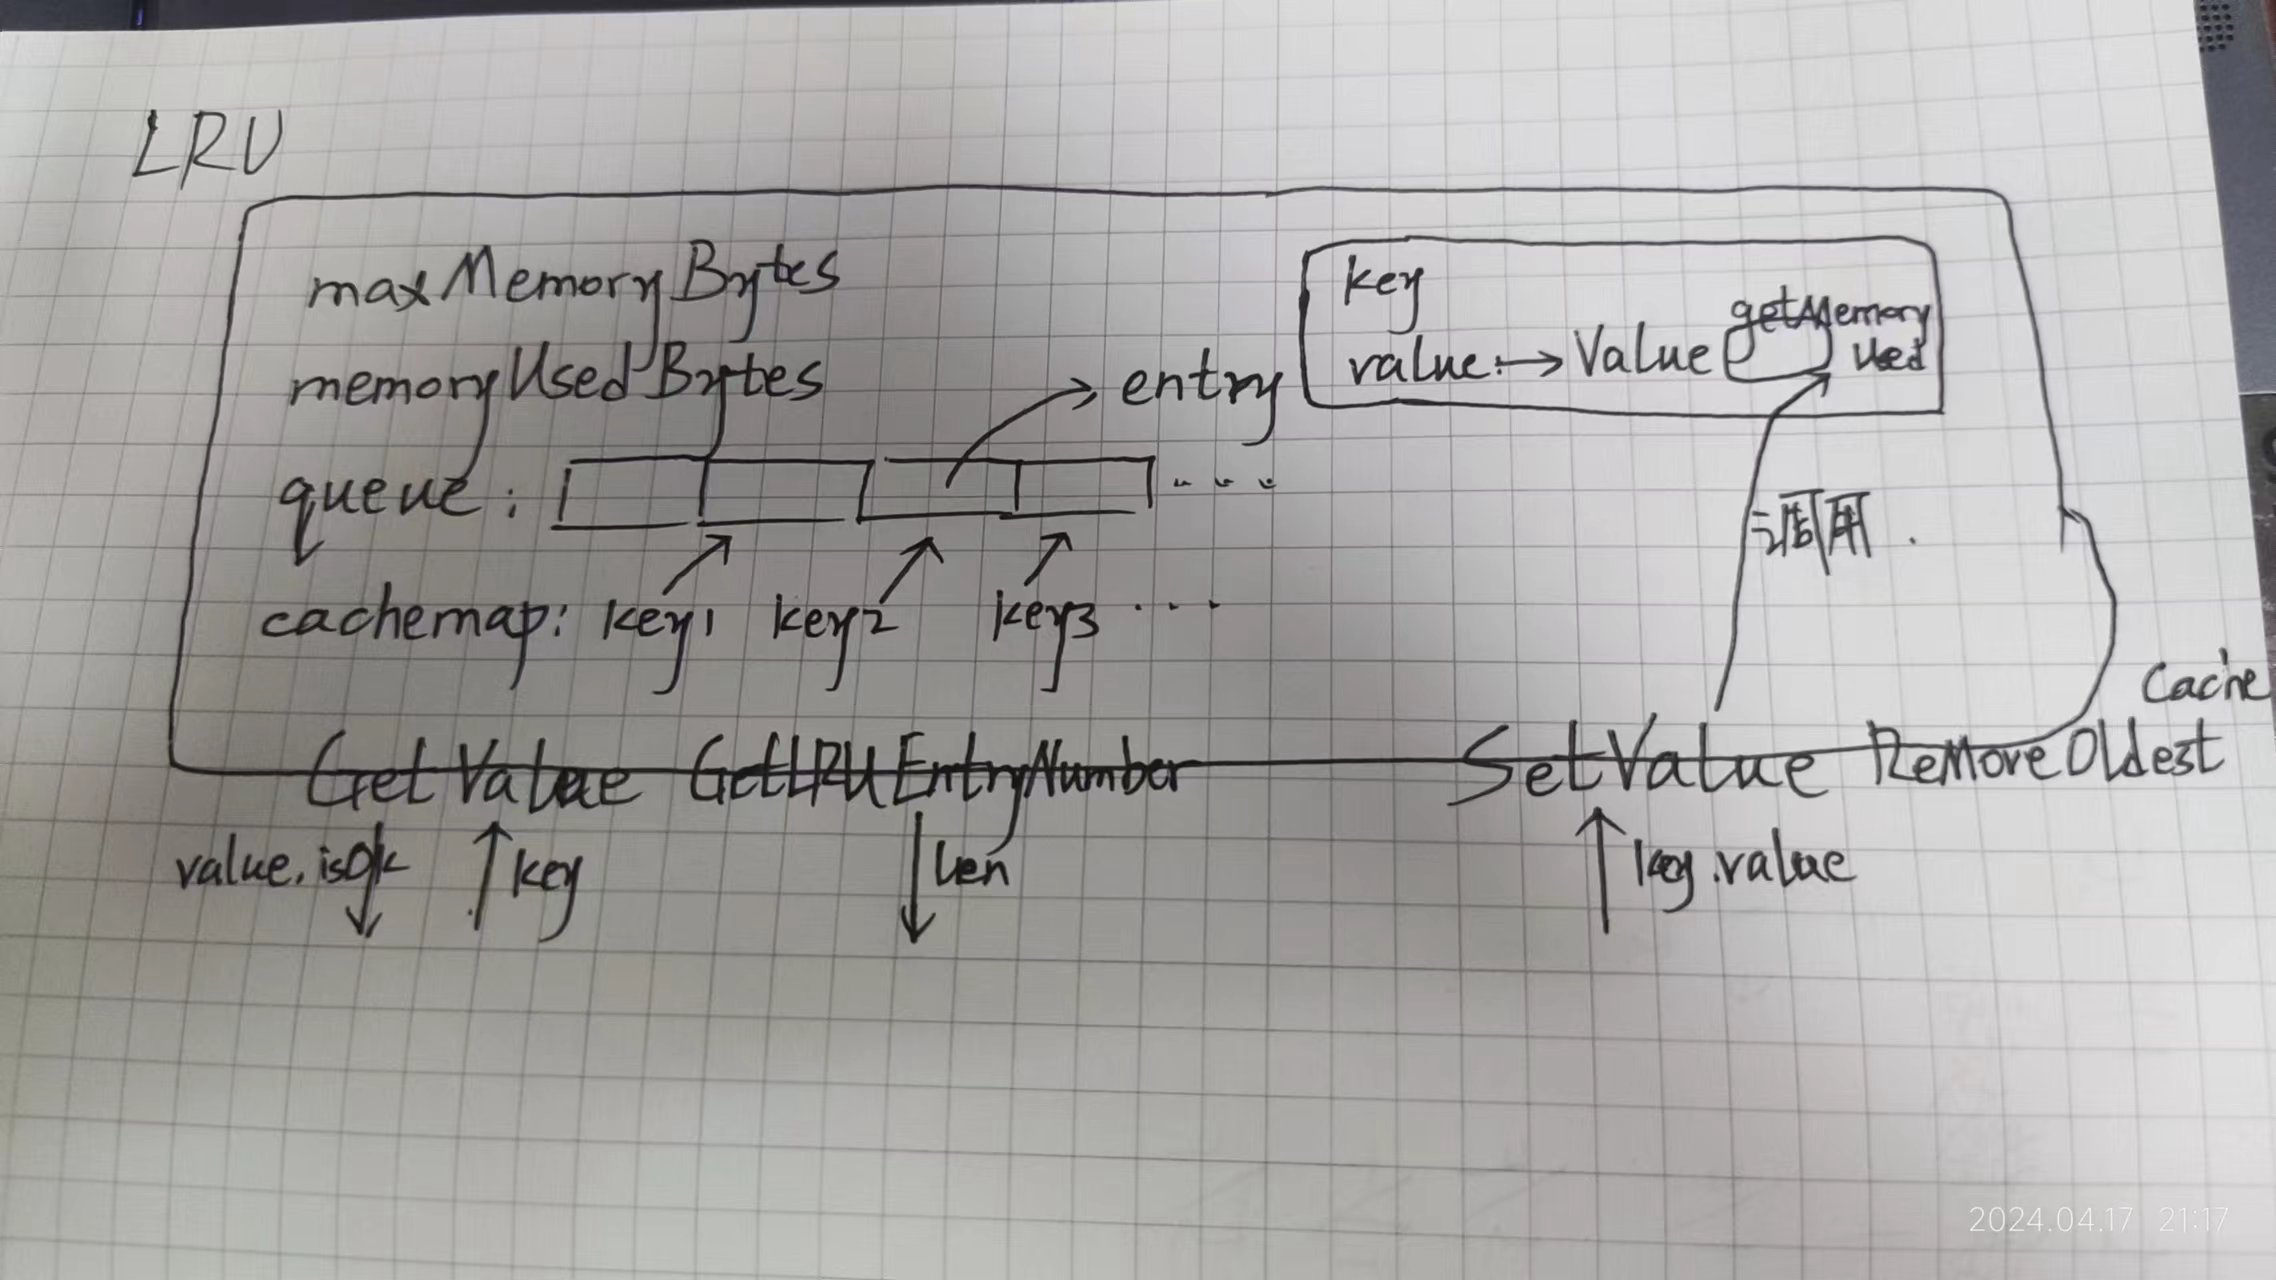 LRU
maxMemoryBytes
memoryUsedBytes
queue: ....
entry
key
value: → Value getMemoryUsed
调用.
cachemap: key1 key2 key3 ...
Cache
GetValue GetLRUEntryNumber SetValue RemoveOldest
value, isOk key len key.value
2024.04.17 21:17